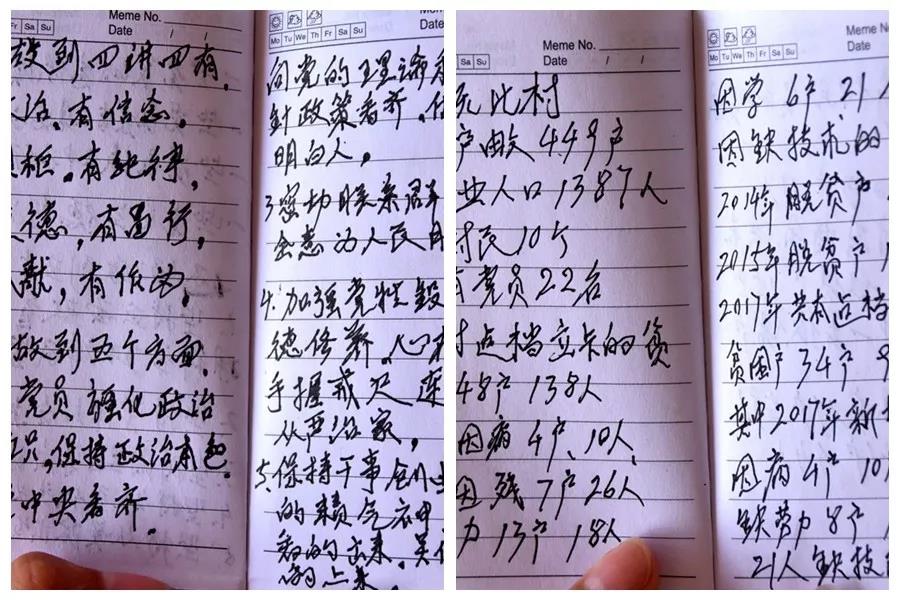 Fr Sa Su
Meme No.
Date / /
做到四讲四有。
治。有信念。
有纪律,
德,有品行,
献,有作为。
做到五个方面。
党员 强化政治
识,保持政治本色
中央看齐。
Mo Tu We Th Fr Sa Su
向党的理论
针政策看齐,
明白人。
3.密切联系群
会意为人民
4.加强党性
德修养。心
手握戒尺
从严治家,
5.保持干事创
的精气神
Sa Su
Meme No.
Date / /
比村
449户
业人口1387人
村民10个
党员22名
档立卡的贫
48户 138人
因病4户、10人、
因残7户26人
力13户 18人
Mo Tu We Th Fr Sa Su
因学6户21
因缺技术的
2014年脱贫户
2015年脱贫户
2017年共有占档
贫困户34户
其中2017年新
因病4户10
缺劳力8户
21人缺技